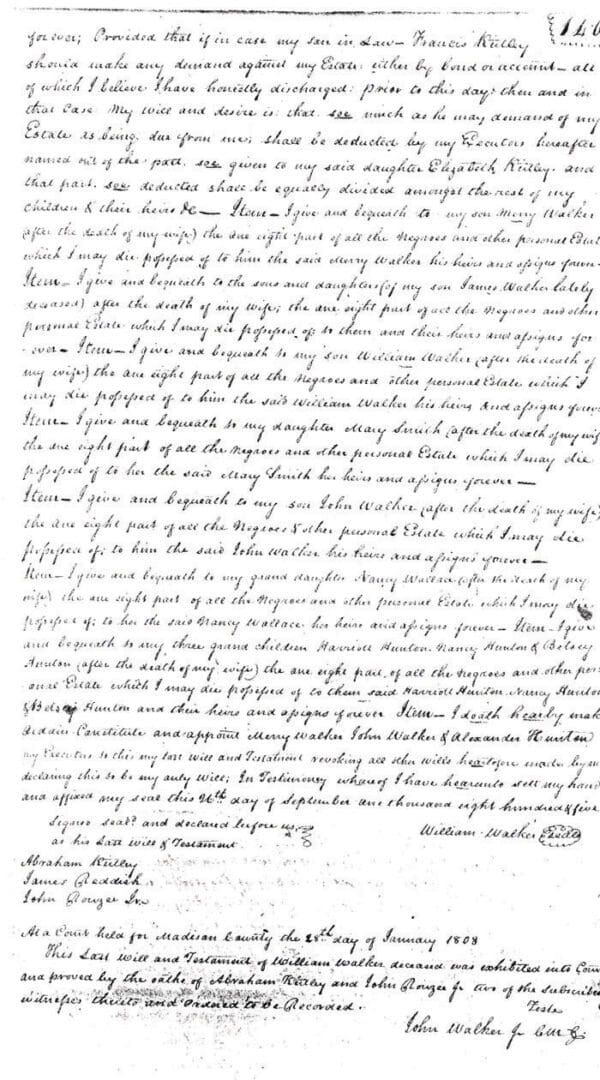 146
forever; Provided that if in case my son in Law – Francis Kirtley
should make any demand against my Estate: either by bond or account – all
of which I believe I have honestly discharged: prior to this day; then and in
that case My will and desire is: that. soe much as he may demand of my
Estate as being due from me; shall be deducted by my Executors hereafter
named out of the part. soe given to my said daughter Elizabeth Kirtley. and
that part. soe deducted shall be equally divided amongst the rest of my
Children & their heirs &c – Item – I give and bequeath to my son Merry Walker
(after the death of my wife) the one eight part of all the Negroes and other personal Estate
which I may die possessed of to him the said Merry Walker his heirs and assigns forever –
Item – I give and bequeath to the sons and daughters (of my son James Walker lately
deceased) after the death of my wife; the one eight part of all the Negroes and other
personal Estate which I may die possessed of; to them and their heirs and assigns for
-ever – Item – I give and bequeath to my son William Walker (after the death of
my wife) the one eight part of all the Negroes and other personal Estate which I
may die possessed of to him the said William Walker his heirs and assigns forever
Item – I give and bequeath to my daughter Mary Smith (after the death of my wife
the one eight part of all the Negroes and other personal Estate which I may die
possessed of to her the said Mary Smith her heirs and assigns forever –
Item – I give and bequeath to my son John Walker (after the death of my wife)
the one eight part of all the Negroes & other personal Estate which I may die
possessed of; to him the said John Walker his heirs and assigns forever –
Item – I give and bequeath to my grand daughter Nancy Wallace (after the death of my
wife) the one eight part of all the Negroes and other personal Estate which I may die
possessed of; to her the said Nancy Wallace her heirs and assigns forever – Item – I give
and bequeath to my three grand children Harriott Hunton. Nancy Hunton & Betsey
Hunton (after the death of my wife) the one eight part of all the Negroes and other pers
onal Estate which I may die possessed of to them said Harriott Hunton Nancy Hunton
& Betsey Hunton and their heirs and assigns forever Item – I doath hearby make
Ordain Constitute and appoint Merry Walker John Walker & Alexander Hunton
my Executors to this my last will and Testament revoking all other wills heartofore made by me
declaring this to be my only will; In Testimony whareof I have hearunto sett my hand
and affixed my seal this 26th day of September one thousand eight hundred & five
Signed seald and declared before us
as his Last Will & Testament
William Walker Seal
Abraham Kirtley
James Reddish
John Rouzee Jr
At a Court held for Madison County the 28th day of January 1808
This Last will and Testament of William Walker deceased was exhibited into Court
and proved by the oaths of Abraham Kirtley and John Rouzee Jr two of the subscribing
witnesses thereto and ordered to be Recorded.
Teste
John Walker Jr CMC